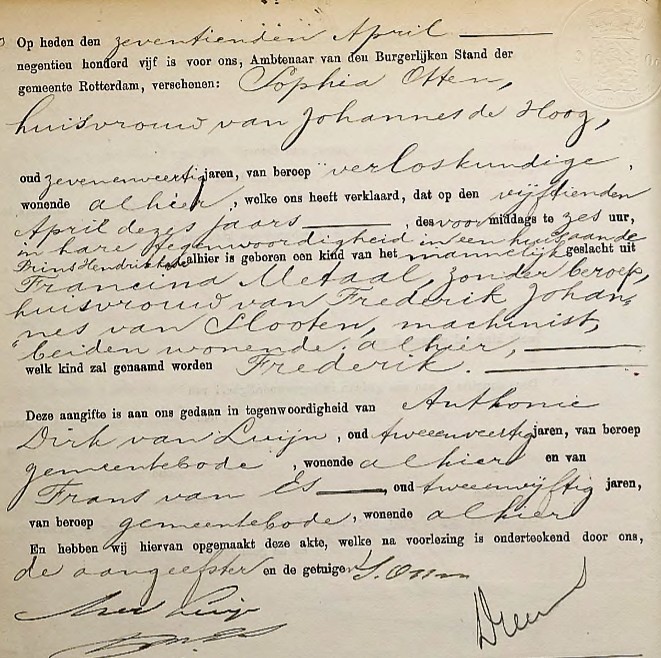 Op heden den zeventienden April
negentien honderd vijf is voor ons, Ambtenaar van den Burgerlijken Stand der
gemeente Rotterdam, verschenen: Sophia Otten,
huisvrouw van Johannes de Hoog,
oud zevenenveertig jaren, van beroep verloskundige,
wonende alhier, welke ons heeft verklaard, dat op den vijftienden
April dezes jaars, des voormiddags te zes uur,
in hare tegenwoordigheid in een huis aan de
Prins Hendrikkade alhier is geboren een kind van het mannelijk geslacht uit
Francina Metaal, zonder beroep,
huisvrouw van Frederik Johan-
nes van Slooten, machinist,
beiden wonende alhier,
welk kind zal genaamd worden Frederik.
Deze aangifte is aan ons gedaan in tegenwoordigheid van Anthonie
Dirk van Luijn, oud tweeenveertig jaren, van beroep
gemeentebode, wonende alhier en van
Frans van Es, oud tweeenvijftig jaren,
van beroep gemeentebode, wonende alhier
En hebben wij hiervan opgemaakt deze akte, welke na voorlezing is onderteekend door ons,
de aangeefster en de getuigen S. Otten